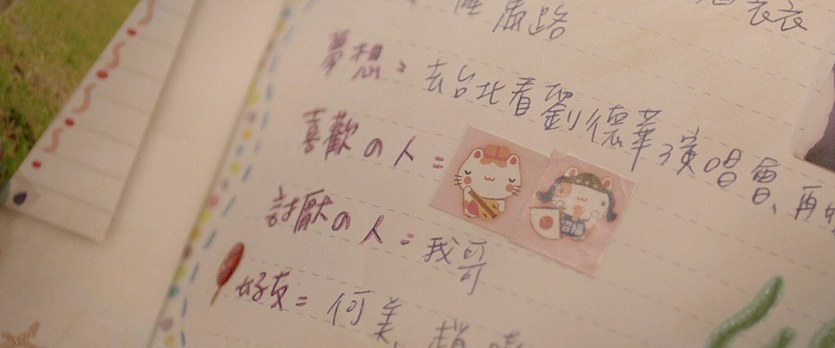 廍路
衣衣
夢想：去台北看劉德華演唱會、再
喜歡の人＝
討厭の人＝我哥
好友＝何美、趙